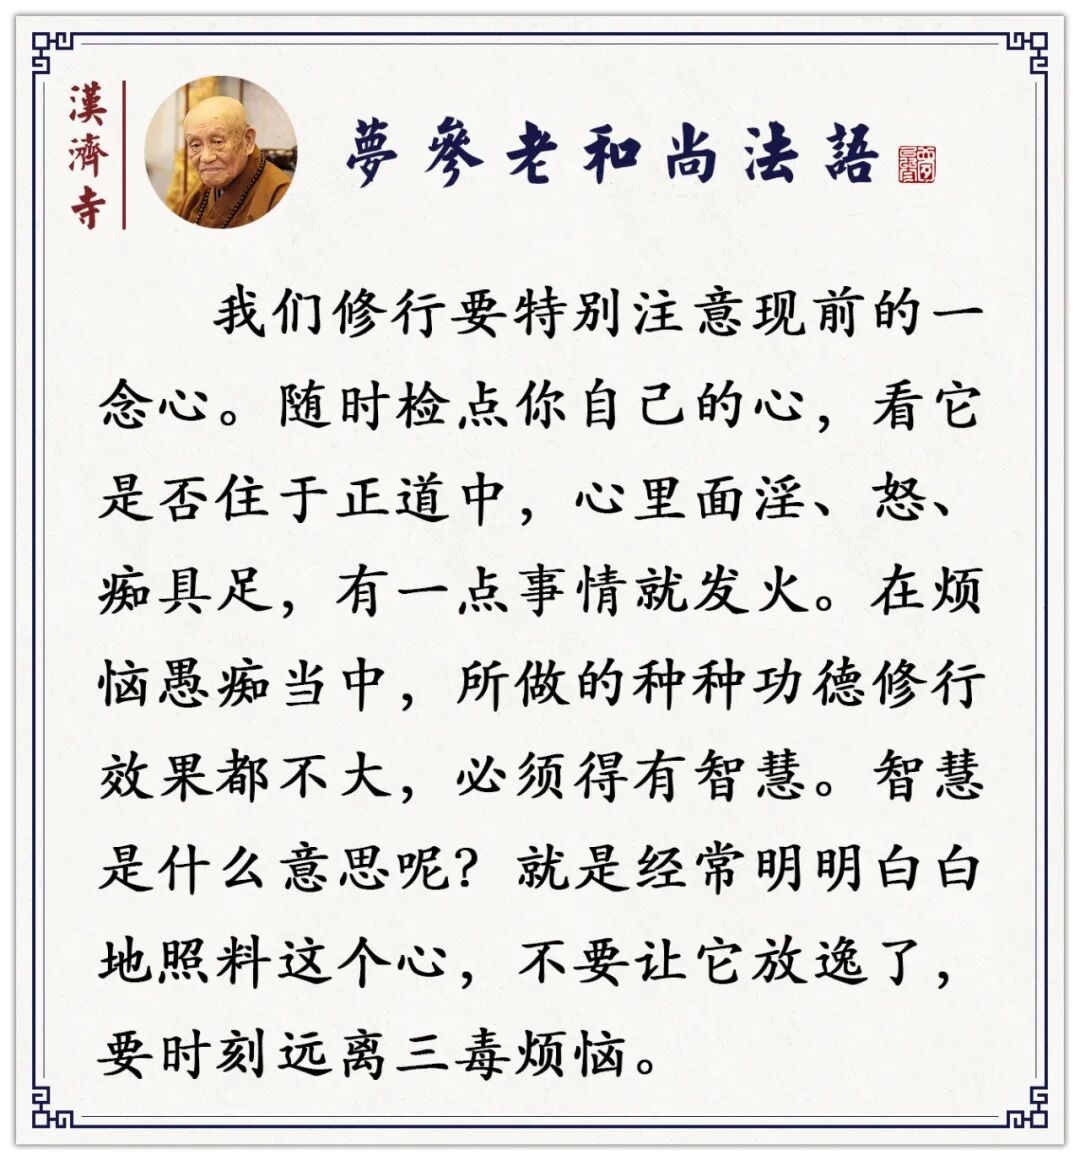 漢濟寺
夢參老和尚法語
我们修行要特别注意现前的一
念心。随时检点你自己的心，看它
是否住于正道中，心里面淫、怒、
痴具足，有一点事情就发火。在烦
恼愚痴当中，所做的种种功德修行
效果都不大，必须得有智慧。智慧
是什么意思呢？就是经常明明白白
地照料这个心，不要让它放逸了，
要时刻远离三毒烦恼。